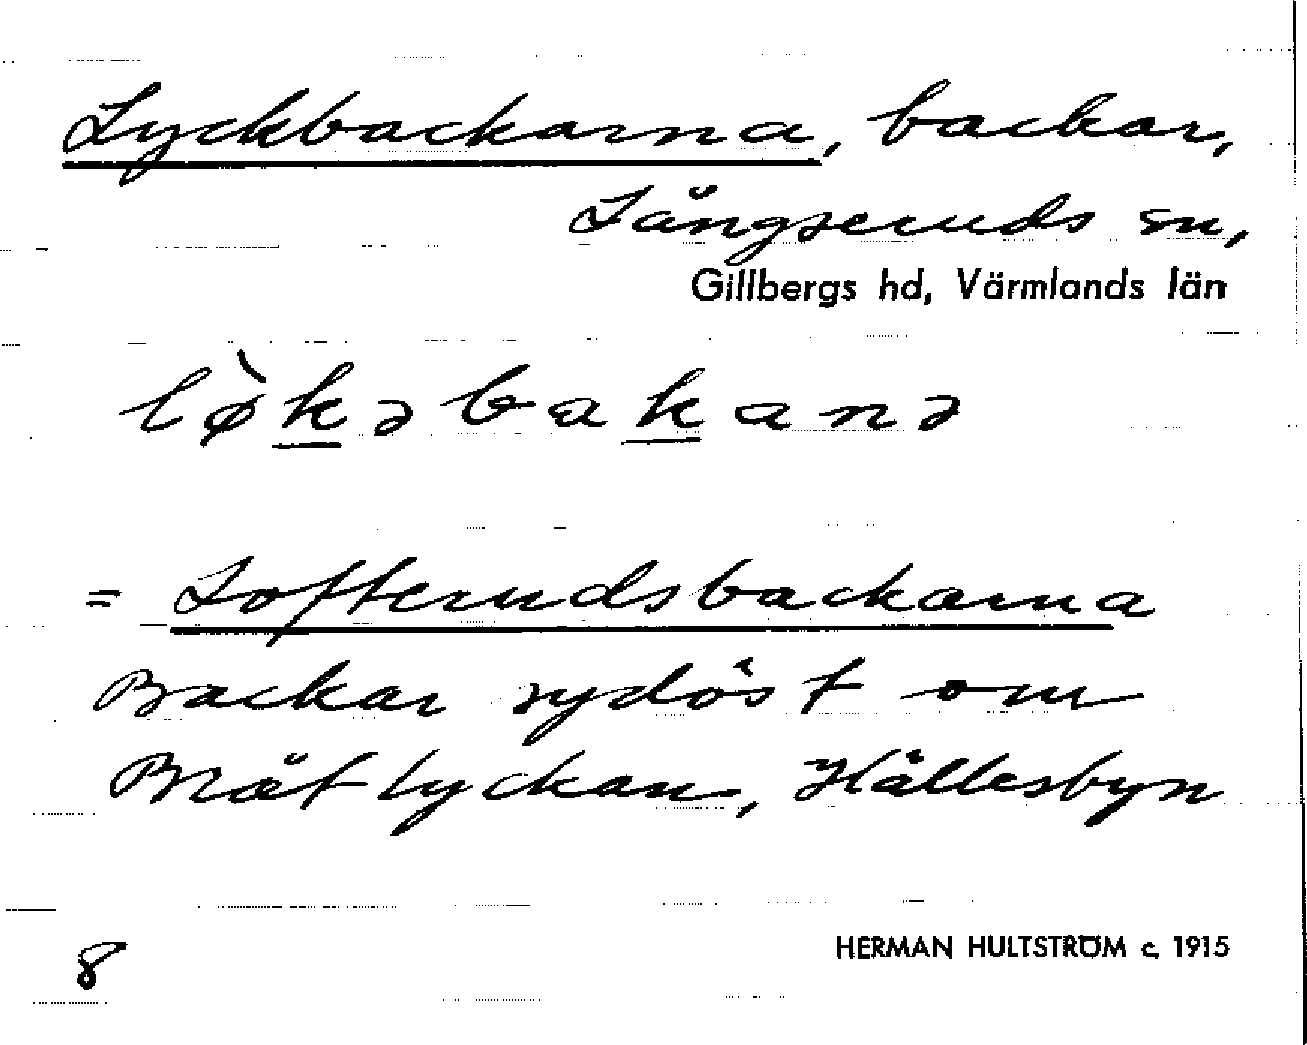 Lyckbackarna, backar,
Långseruds sn,
Gillbergs hd, Värmlands län
lø̀kəbakanə
= Lofterudsbackarna
Backar sydöst om
Brätlyckan, Hällesbyn
8 HERMAN HULTSTRÖM c. 1915